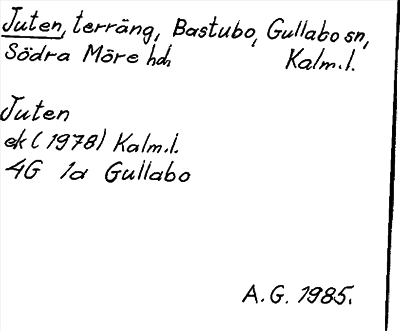 Juten, terräng, Bastubo, Gullabo sn,
Södra Möre hd, Kalm.l.
Juten
ek (1978) Kalm.l.
4G 1a Gullabo
A.G. 1985.